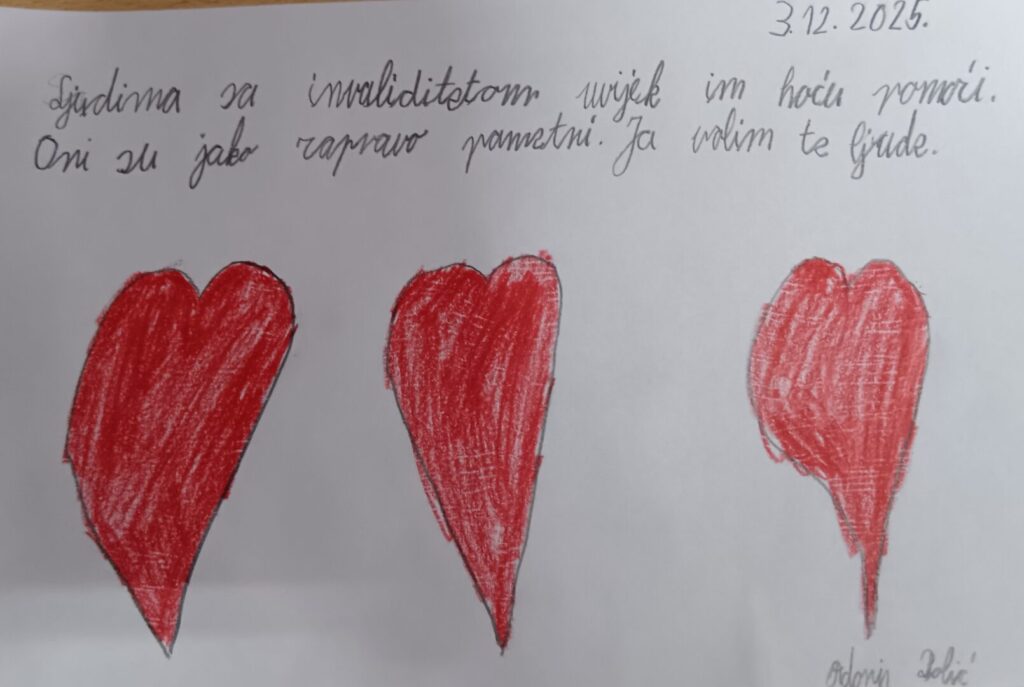 3.12.2025.
Ljudima sa invaliditetom uvijek im hoću pomoći.
Oni su jako zapravo pametni. Ja volim te ljude.